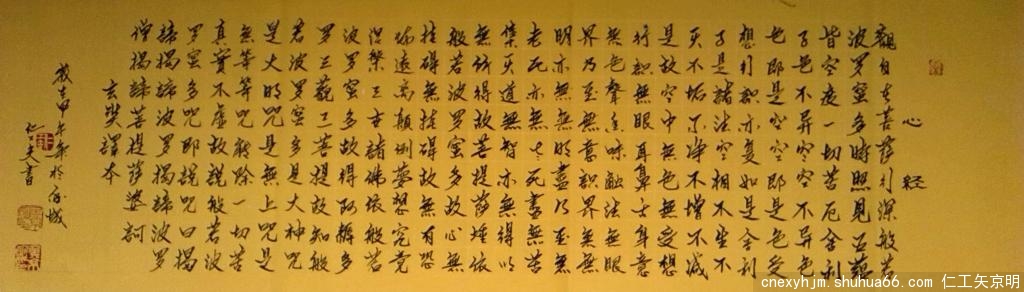 心 经
觀自在菩薩行深般若
波罗蜜多時照見五蕴
皆空度一切苦厄舍利
子色不异空空不异色
色即是空空即是色受
想行识亦复如是舍利
子是諸法空相不生不
灭不垢不净不增不减
是故空中無色無受想
行識無眼耳鼻舌身意
無色聲香味觸法無眼
界乃至無意識界無無
明亦無無明盡乃至無
老死亦無老死盡無苦
集灭道無智亦無得以
無所得故菩提薩埵依
般若波罗蜜多故心無
挂碍無挂碍故無有恐
怖遠离顛倒夢想究竟
涅槃三世諸佛依般若
波罗蜜多故得阿耨多
罗三藐三菩提故知般
若波罗蜜多是大神咒
是大明咒是無上咒是
無等等咒能除一切苦
真實不虛故說般若波
罗蜜多咒即說咒曰揭
諦揭諦波罗揭諦波罗
僧揭諦菩提薩婆訶
玄奘譯本
歲在甲午年秋於城
仁工矢書
cnexyhjm.shuhua66.com 仁工矢京明